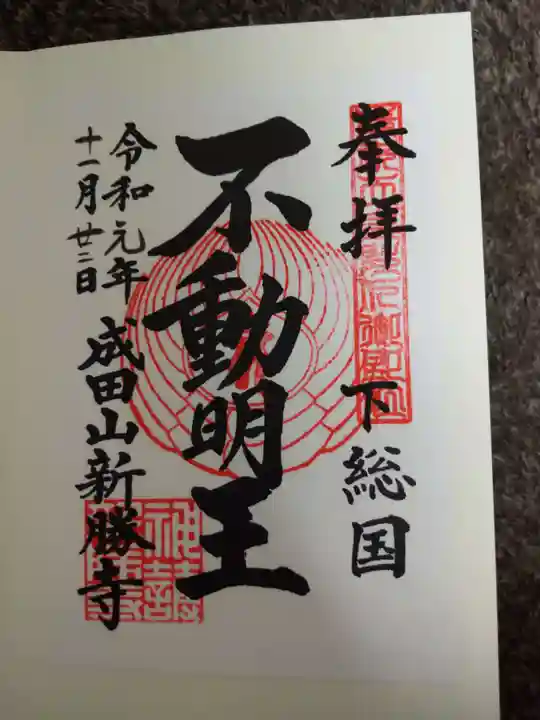 奉拝 下総国
不動明王
令和元年
十一月廿三日
成田山新勝寺